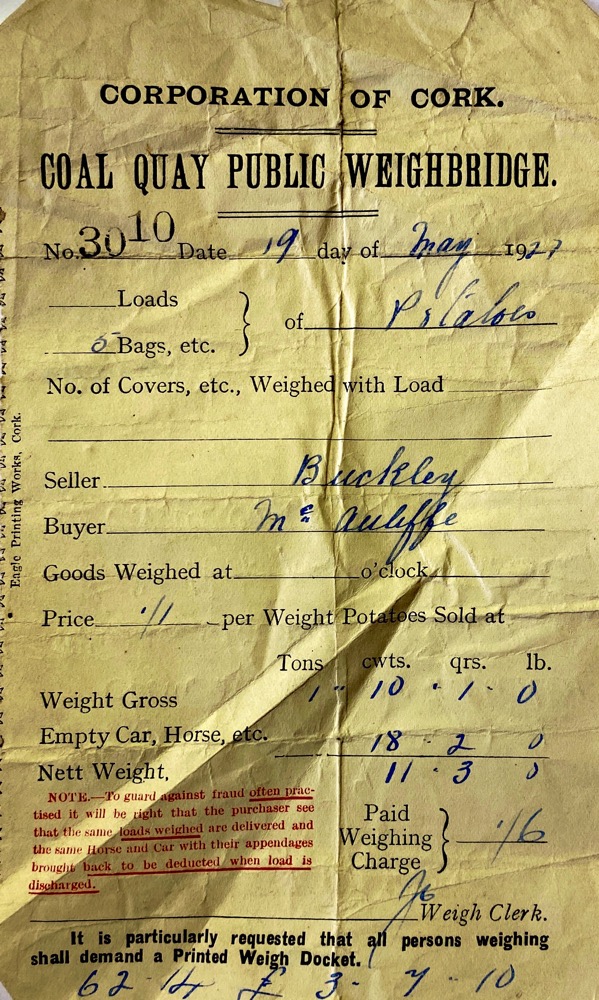 CORPORATION OF CORK.
COAL QUAY PUBLIC WEIGHBRIDGE.
No. 3010 Date 19 day of May 1927
Loads
of Potatoes
5 Bags, etc.
No. of Covers, etc., Weighed with Load
Seller Buckley
Buyer Mc Auliffe
Goods Weighed at o'clock
Price 1/1 per Weight Potatoes Sold at
Tons cwts. qrs. lb.
Weight Gross 1 - 10 - 1 - 0
Empty Car, Horse, etc. 18 - 2 0
Nett Weight, 11 - 3 0
NOTE.—To guard against fraud often prac-
tised it will be right that the purchaser see
that the same loads weighed are delivered and
the same Horse and Car with their appendages
brought back to be deducted when load is
discharged.
Paid
Weighing
Charge
-/6
Weigh Clerk.
It is particularly requested that all persons weighing
shall demand a Printed Weigh Docket.
62-14 £ 3-7-10
Eagle Printing Works, Cork.